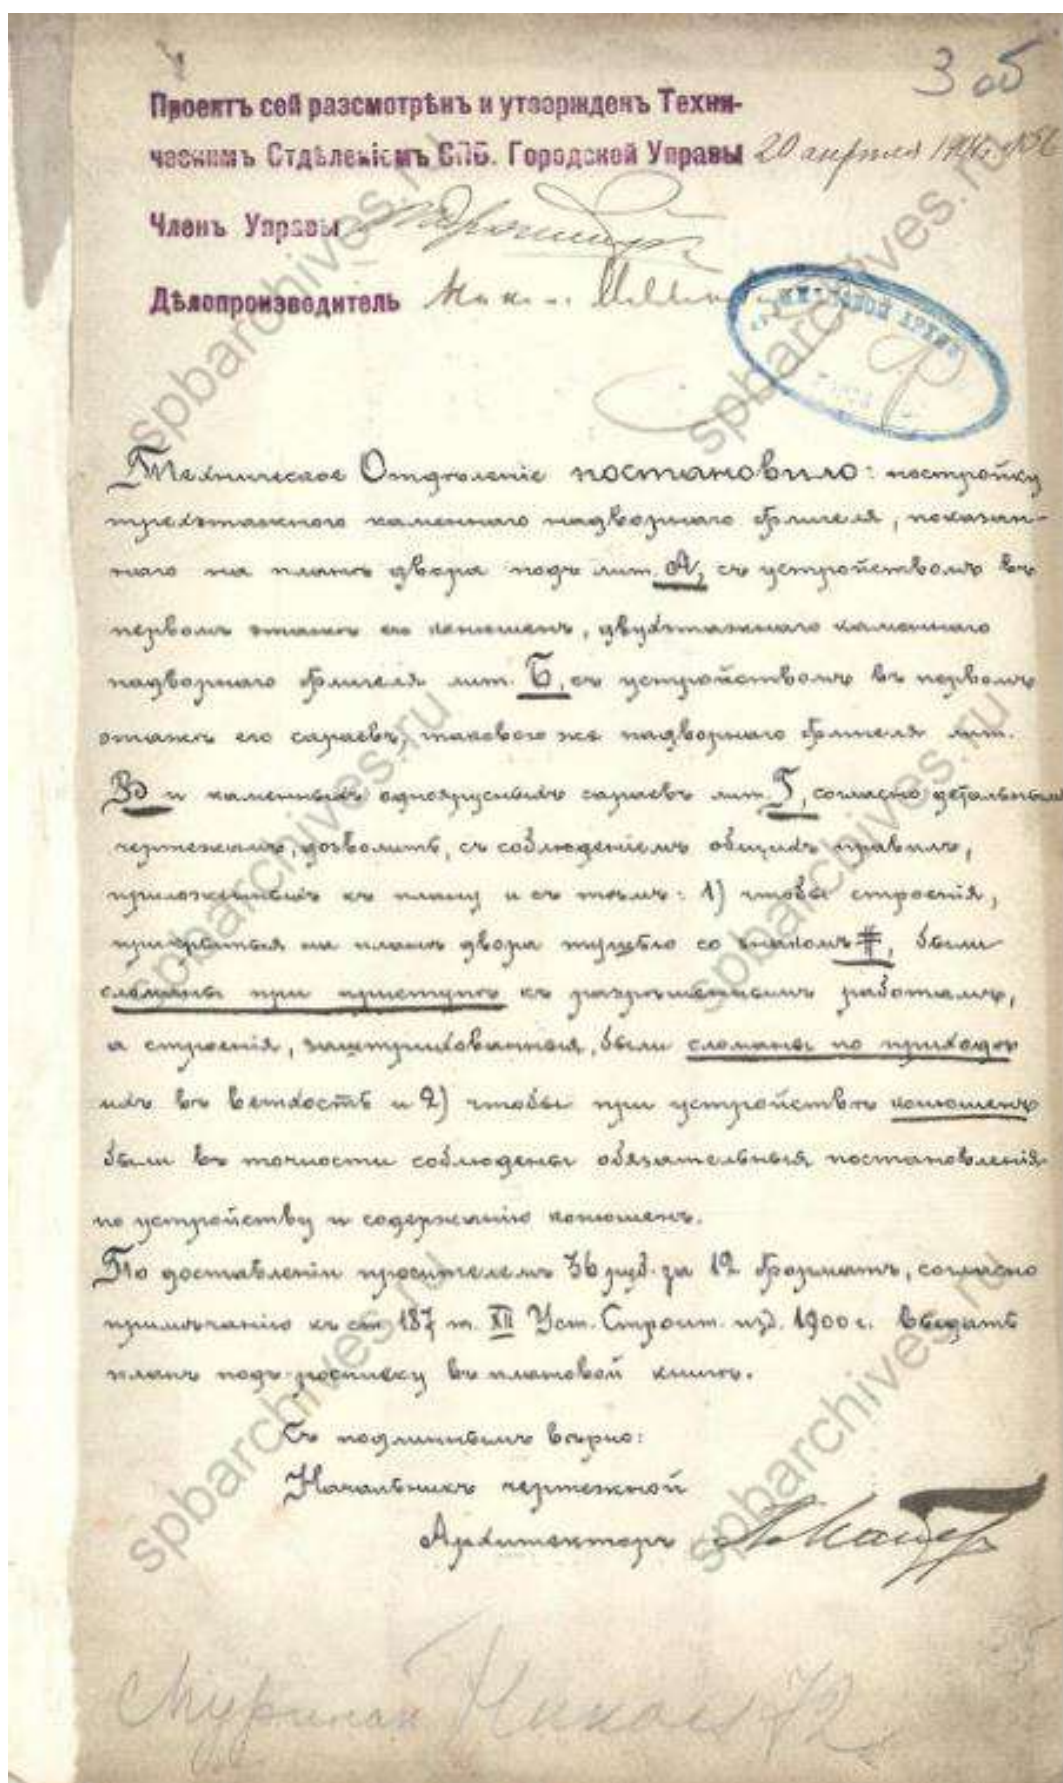 3 об
Проектъ сей разсмотрѣнъ и утвержденъ Техни-
ческимъ Отдѣленіемъ СПБ. Городской Управы 20 апрѣля
Членъ Управы
Дѣлопроизводитель
Техническое Отдѣленіе постановило: постройку
трехъэтажного каменнаго надворнаго флигеля, показан-
наго на планѣ двора подъ лит. А, съ устройствомъ въ
первомъ этажѣ его конюшенъ, двухэтажнаго каменнаго
надворнаго флигеля лит. Б, съ устройствомъ въ первомъ
этажѣ его сараевъ, такового же надворнаго флигеля лит.
В и каменныхъ одноярусныхъ сараевъ лит. Г, согласно детальнымъ
чертежамъ, дозволить, съ соблюденіемъ общихъ правилъ,
приложенныхъ къ плану и съ тѣмъ: 1) чтобы строенія,
на планѣ двора тушью со знакомъ ⌗, были
сломаны при приступѣ къ разрѣшеннымъ работамъ,
а строенія, заштрихованныя, были сломаны по приходѣ
ихъ въ ветхость и 2) чтобы при устройствѣ конюшенъ
были въ точности соблюдены обязательныя постановленія
по устройству и содержанію конюшенъ.
По доставленіи просителемъ 36 руб. за 12 форматъ, согласно
примѣчанію къ ст. 187 т. XII Уст. Строит. изд. 1900 г. выдать
планъ подъ росписку въ плановой книгѣ.
Съ подлиннымъ вѣрно:
Начальникъ чертежной
Архитекторъ
spbarchives.ru
spbarchives.ru
spbarchives.ru
spbarchives.ru
spbarchives.ru
spbarchives.ru